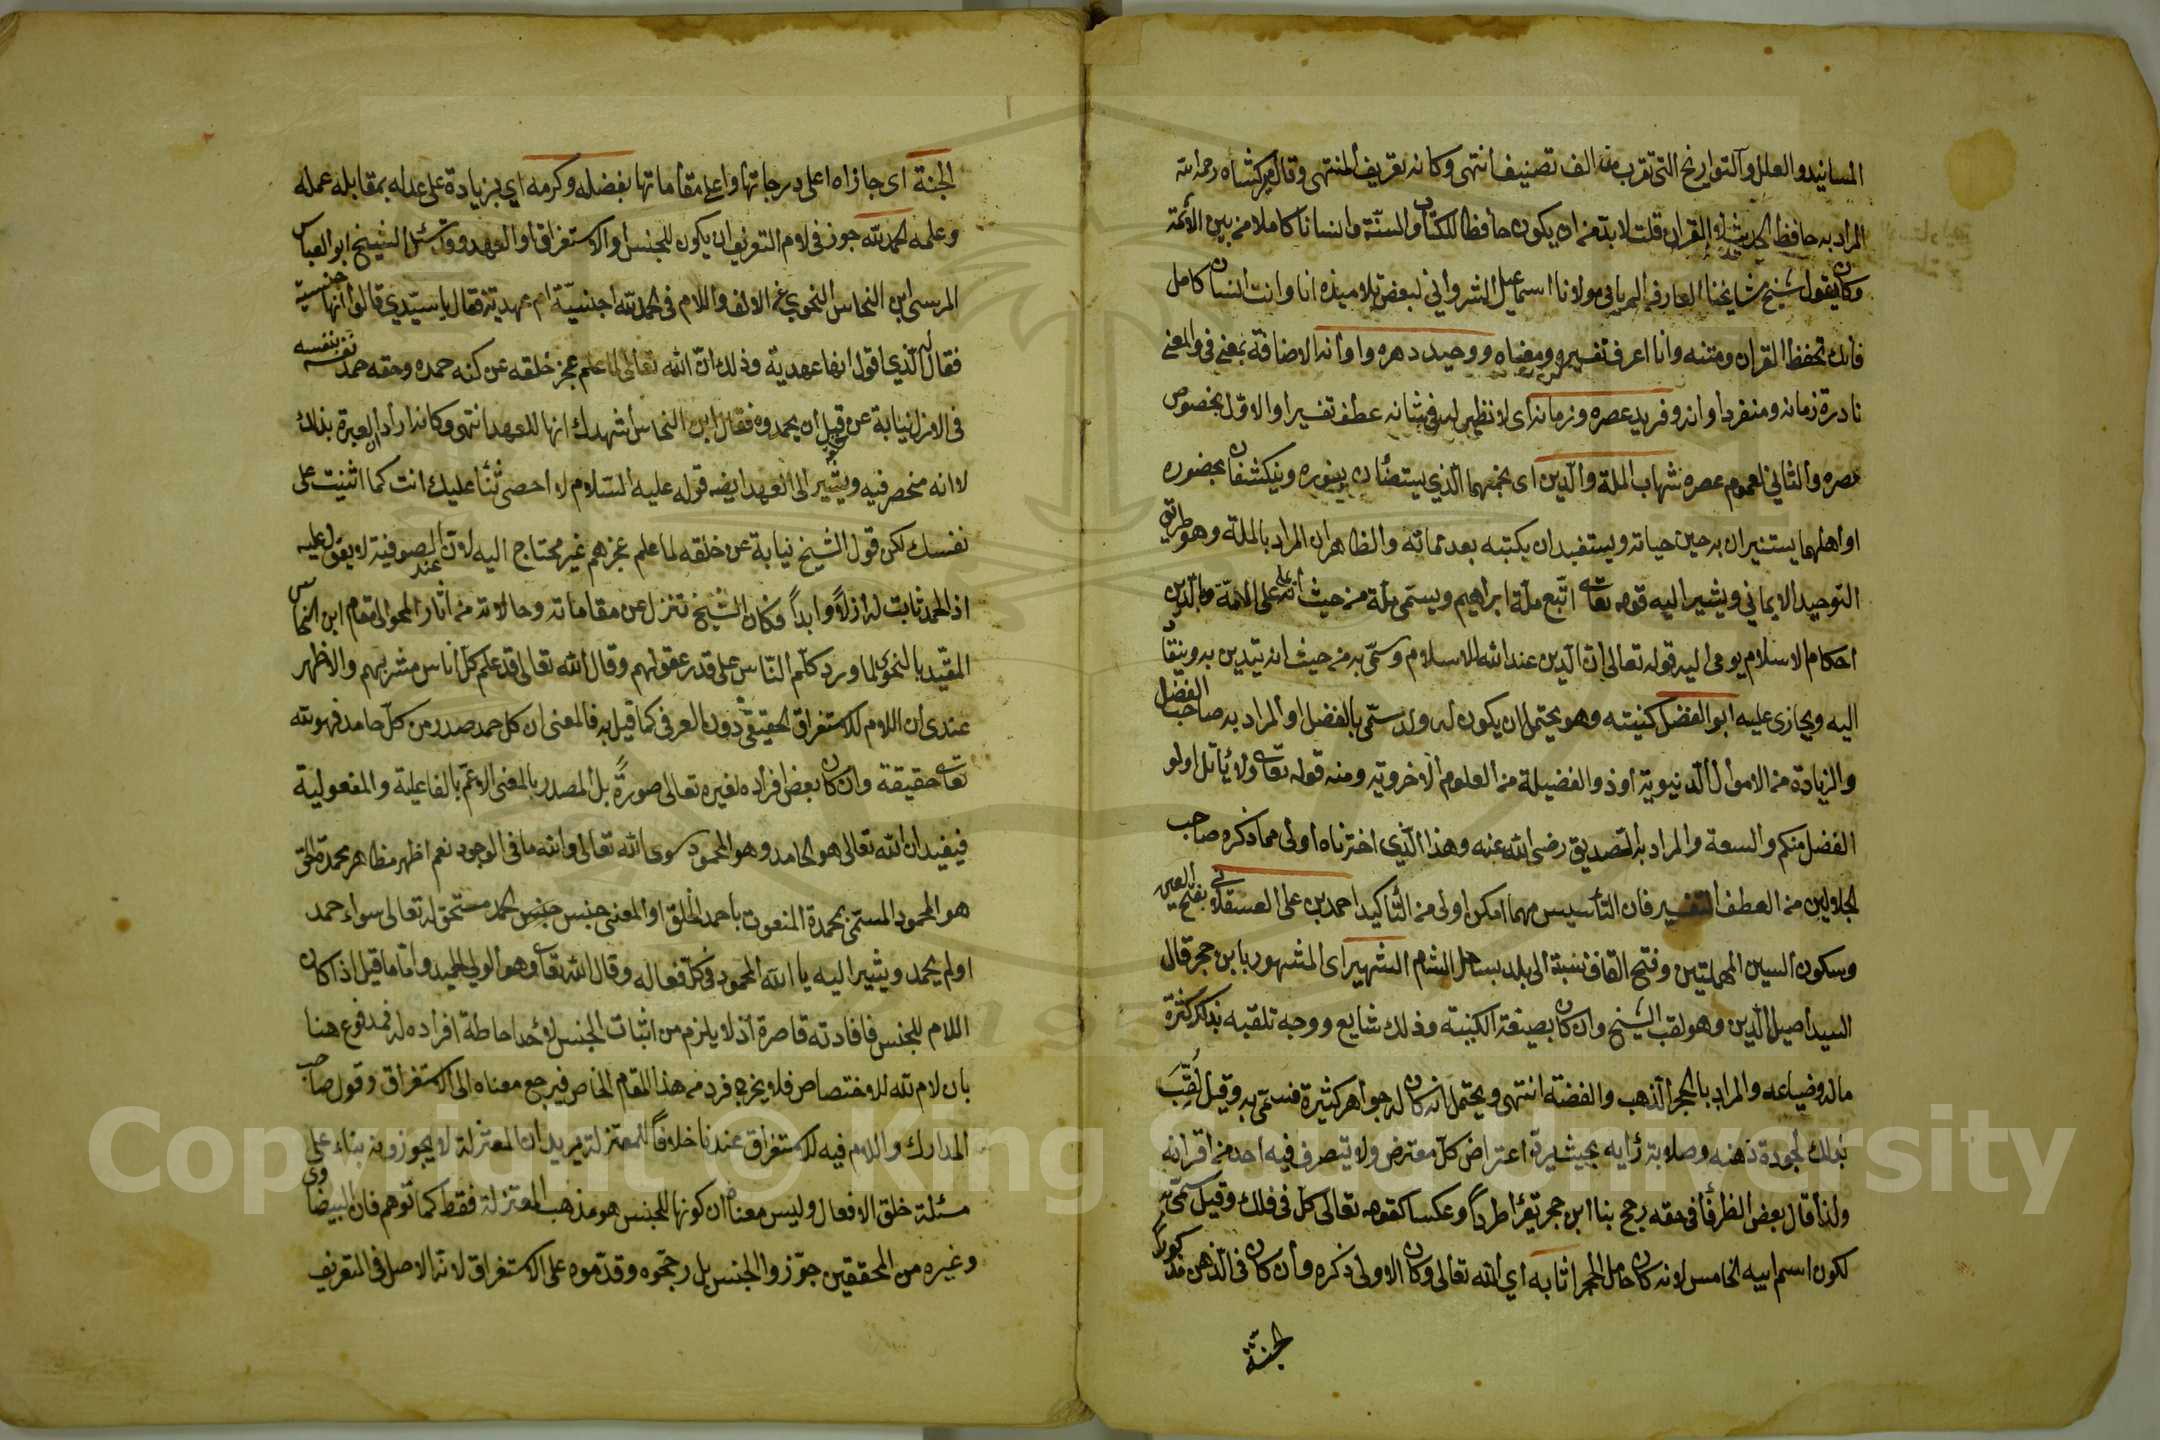 المسانيد والعلل والتواريخ التي تقرب من الف تصنيف انتهى وكانه تعريف المنتهى وقال ميركشاه رحمه الله
المراد به حافظ الحديث او القرآن قلت لا بد من ان يكون حافظا للكتاب والسنة وانسانا كاملا من بين الأئمة
وكان يقول شيخ مشايخنا العارف الرباني مولانا اسماعيل الشرواني لبعض تلاميذه انا وانت انسان كامل
فانك تحفظ القرآن ومتنه وانا اعرف تفسيره ومعناه ووحيد دهره واوانه الاضافة بمعنى في والمعنى
نادرة زمانه ومنفرد اوانه وفريد عصره وزمانه اى لا نظير له في شانه عطف تفسير او الاول بخصوص
عصره والثاني لعموم عصره شهاب الملة والدين اى نجمهما الذي يستضئان بنوره وينكشفان بحضوره
او اهلهما يستنيران به حين حياته ويستفيدان بكتبه بعد مماته والظاهر ان المراد بالملة وهو طريق
التوحيد الايماني ويشير اليه قوله تعالى اتبع ملة ابراهيم ويسمى ملة من حيث انه تملى على الامة وبالدين
احكام الاسلام يومى اليه قوله تعالى ان الدين عند الله الاسلام وسمى به من حيث انه يتدين به وينقاد
اليه ويجازى عليه ابو الفضل كنيته وهو يحتمل ان يكون له ولد سمى بالفضل او المراد به صاحب الفضل
والزيادة من الاموال الدنيوية او ذو الفضيلة من العلوم الاخروية ومنه قوله تعالى ولا يأتل اولو
الفضل منكم والسعة والمراد به الصديق رضى الله عنه وهذا الذي اخترناه اولى مما ذكره صاحب
الجلالين من العطف التفسير فان التأسيس مهما امكن اولى من التأكيد احمد بن على العسقلاني بفتح العين
وسكون السين المهملتين وفتح القاف نسبة الى بلد بساحل الشام الشهير اى المشهور بابن حجر قال
السيد اصيل الدين وهو لقب الشيخ وان كان بصيغة الكنية وذلك شايع ووجه تلقبه بذلك كثرة
ماله وضياعه والمراد بالحجر الذهب والفضة انتهى ويحتمل انه كان له جواهر كثيرة فسمى به وقيل لقب
بذلك لجودة ذهنه وصلابة رأيه بحيث يرد اعتراض كل معترض ولا يتصرف فيه احد من اقرانه
ولذا قال بعض الظرفا في حقه رجح بنا ابن حجر تقرأ طردا وعكسا كقوله تعالى كل في فلك وقيل سمى به
لكون اسم ابيه الخامس لانه كان حامل الحجر اثابه اى الله تعالى وكان الاولى ذكره وان كان في الذهن مذكورا
الجنة
الجنة اى جازاه اعلى درجاتها واعلى مقاماتها بفضله وكرمه اى بزيادة على عدله بمقابلة عمله
وعلمه الحمد لله جوز في لام التعريف ان يكون للجنس او الاستغراق او العهد وقد سئل الشيخ ابو العباس
المرسى ابن النحاس النحوي عن الالف واللام في الحمد لله اجنسية ام عهدية فقال يا سيدي قالوا انها جنسية
فقال له الذي اقول انها عهدية وذلك ان الله تعالى لما علم عجز خلقه عن كنه حمده وحقه حمد نفسه بنفسه
في الازل نيابة عن خلقه قبل أن يحمدوه فقال ابن النحاس اشهدك انها للعهد انتهى وكانه اراد ان العبرة بذلك
لا انه منحصر فيه ويشير الى العهد ايضا قوله عليه السلام لا احصى ثنأ عليك انت كما اثنيت على
نفسك لكن قول الشيخ نيابة عن خلقه لما علم عجزهم غير محتاج اليه لان عند الصوفية لا يعول عليه
اذ الحمد ثابت له ازلا وابدا فكان الشيخ تنزل عن مقاماته وحالاته من اثار المحو الى مقام ابن النحاس
المقيد بالنحو لما ورد كلم الناس على قدر عقولهم وقال الله تعالى قد علم كل أناس مشربهم والاظهر
عندى ان اللام للاستغراق الحقيقي دون العرفي كما قيل به فالمعنى ان كل حمد صدر من كل حامد فهو لله
تعالى حقيقة وان كان بعض افراده لغيره تعالى صورة بل المصدر بالمعنى الاعم بالفاعلية والمفعولية
فيفيد ان الله تعالى هو الحامد وهو المحمود سوى الله تعالى والله ما في الوجود نعم اظهر مظاهر محمدة الحق
هو المحمود المسمى بمحمد المنعوت باحمد الخلق او المعنى جنس جنس الحمد مستحق له تعالى سواء حمد
او لم يحمد ويشير اليه يا الله المحمود في كل فعاله وقال الله تعالى وهو الولي الحميد واما ما قيل اذا كان
اللام للجنس فافادته قاصرة اذ لا يلزم من اثبات الجنس لأحد احاطة افراده له فمدفوع هنا
بان لام لله للاختصاص فلا يخرج فرد من هذا المقام الخاص فيرجع معناه الى الاستغراق وقول صاحب
المدارك واللام فيه للاستغراق عندنا خلافا للمعتزلة يريد ان المعتزلة لا يجوزونه بناء على
مسئلة خلق الافعال وليس معناه ان كونها للجنس هو مذهب المعتزلة فقط كما توهم فان البيضاوى
وغيره من المحققين جوزوا الجنس بل رجحوه وقدموه على الاستغراق لانه الاصل في التعريف
Copyright © King Saud University